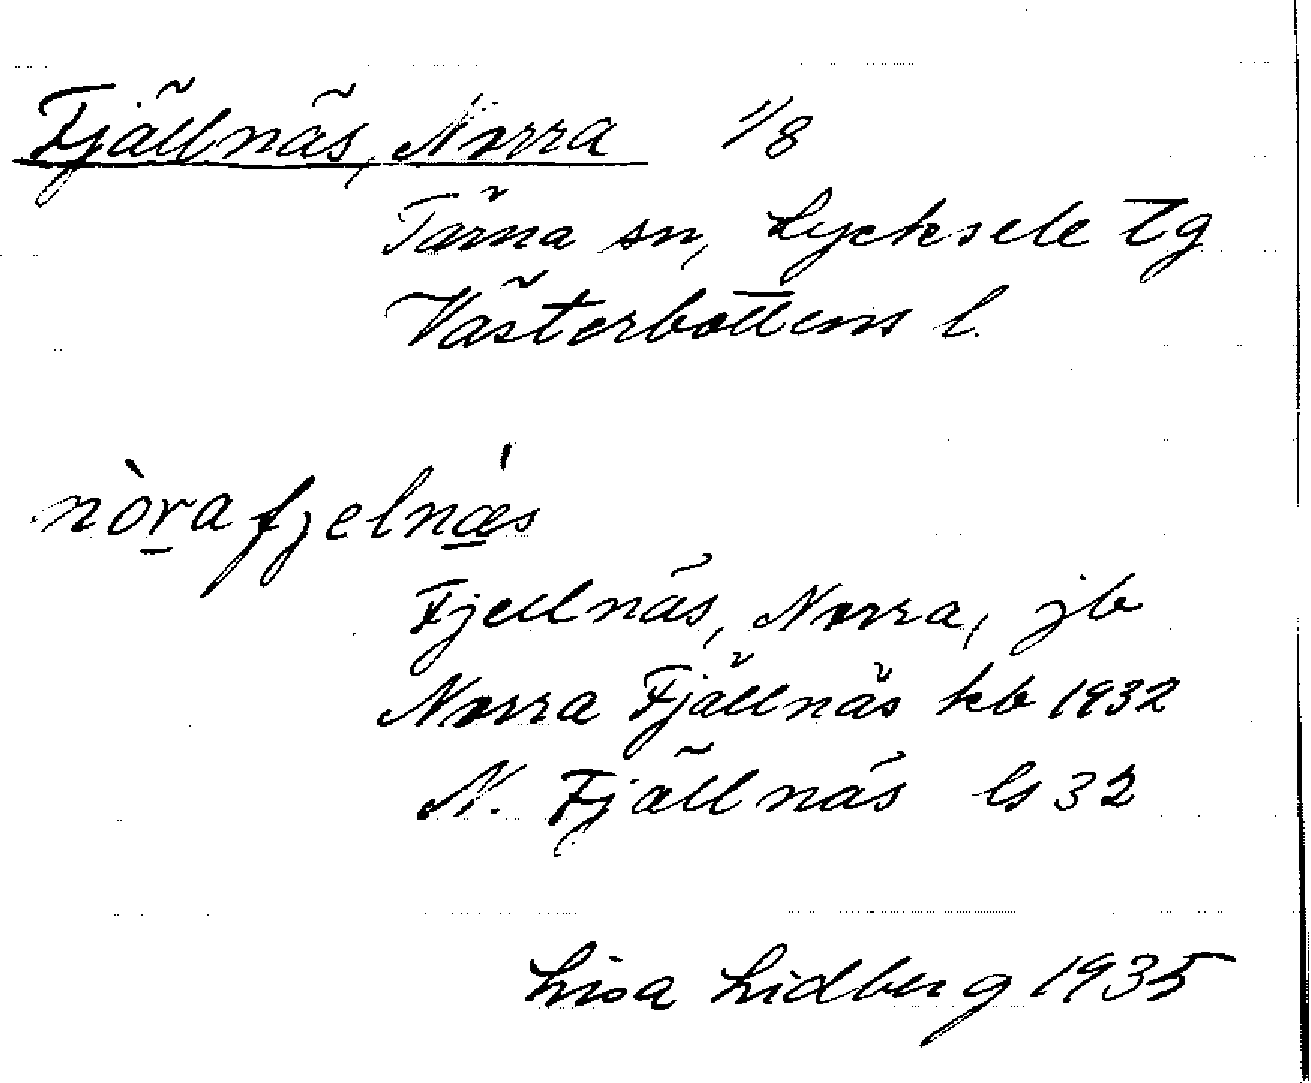 Fjällnäs, Norra 1/8
Tärna sn, Lycksele tg
Västerbottens l.
nòra fjelnæ̀s
Fjellnäs, Norra, jb
Norra Fjällnäs kb 1932
N. Fjällnäs ls 32
Lisa Lidberg 1935